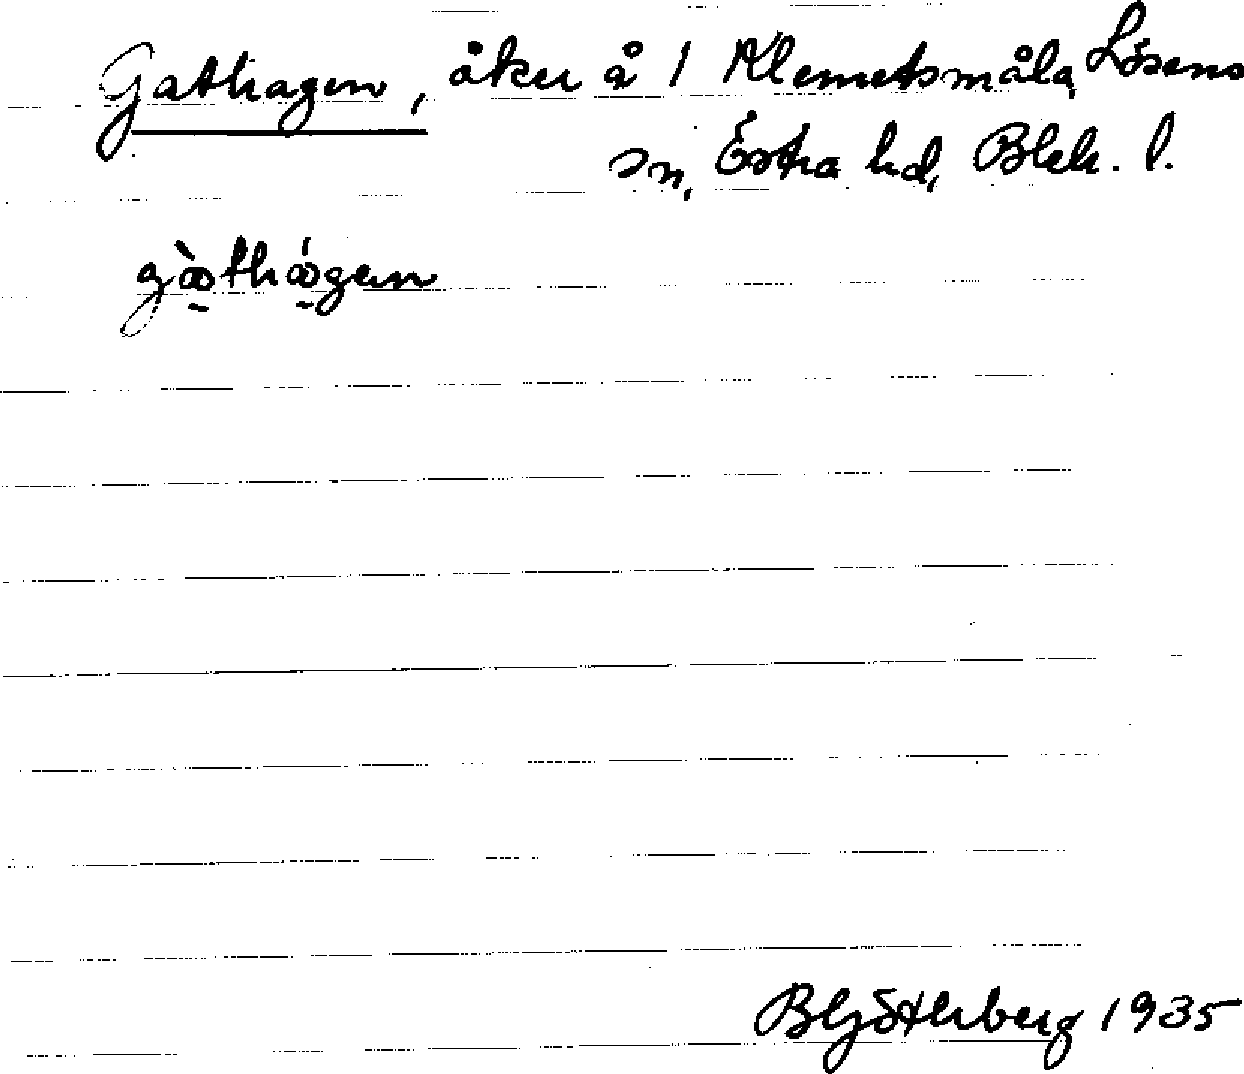 Gathagen, åker å 1 Klemetsmåla, Lösens
sn, Östra hd, Blek. l.
gàthágen
B Götherberg 1935